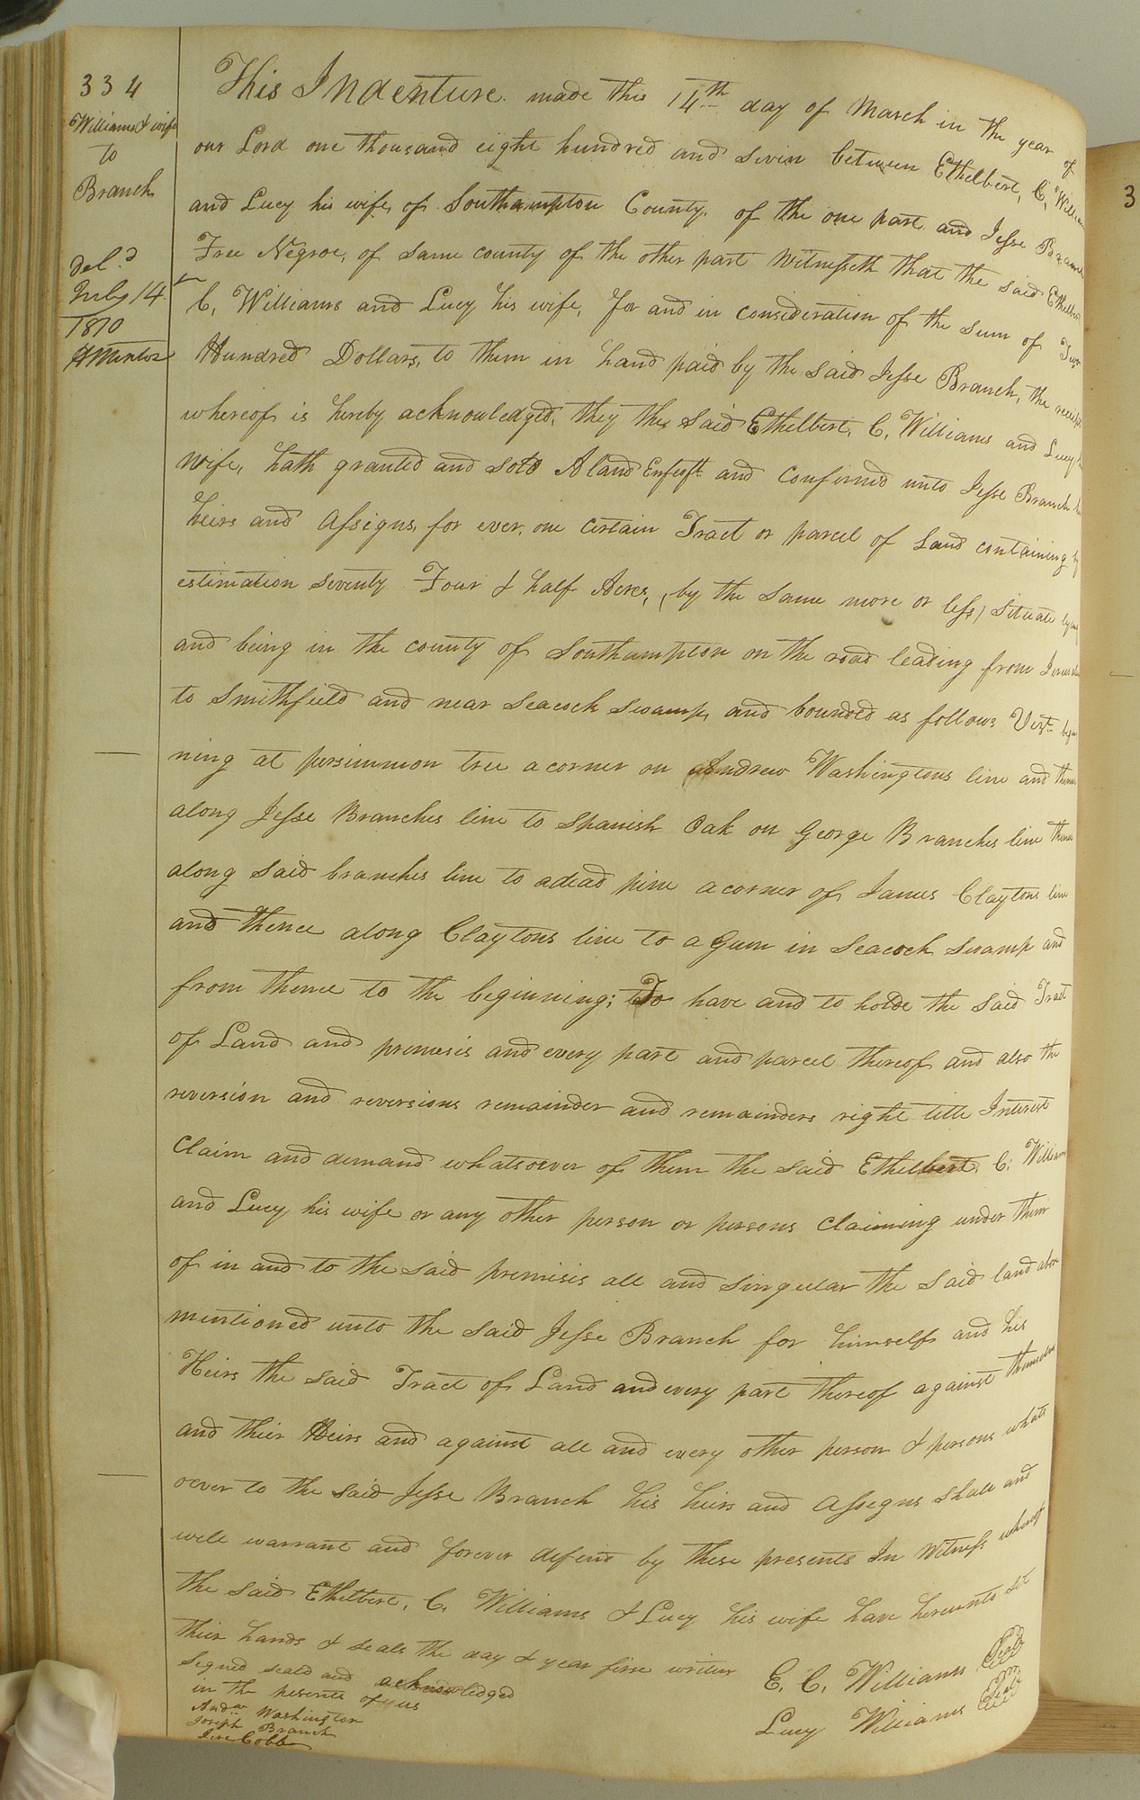 334
Williams & wife
to
Branch
Del.d
July 14
1810
This Indenture made this 14th day of March in the year of
our Lord one thousand eight hundred and sevin between Ethelbert, C, Williams
and Lucy his wife, of Southampton County, of the one part and Jesse Branch
Free Negroe, of same county of the other part Witnesseth that the said Ethelbert
C, Williams and Lucy his wife, for and in consideration of the sum of Two
Hundred Dollars, to them in hand paid by the said Jesse Branch, the receipt
whereof is hereby acknowledged, they the said Ethelbert, C, Williams and Lucy his
Wife, hath granted and sold Aland Enfeoft and Confirmed unto Jesse Branch his
heirs and Assigns, for ever, one certain Tract or parcel of Land containing by
estimation seventy Four & half Acres, (by the same more or less) situate lying
and being in the county of Southampton on the road leading from Jerusalem
to Smithfield and near Seacock Swamp, and bounded as follows Vizt begin
ning at persimmon tree acorner on Andrew Washingtons line and thence
along Jesse Branches line to Spanish Oak on George Branches line thence
along said branches line to adead pine acorner of James Claytons line
and thence along Claytons line to a Gum in Seacock Swamp and
from thence to the beginning; To have and to holde the said Tract
of Land and premisis and every part and parcel thereof and also the
reversion and reversions remainder and remainders right title Interest
Claim and demand whatsoever of them the said Ethelbert, C, Williams
and Lucy his wife or any other person or persons Claiming under them
of in and to the said premisis all and singular the said land above
mentioned unto the said Jesse Branch for himself and his
Heirs the said Tract of Land and every part thereof against themselves
and their Heirs and against all and every other person & persons whats
oever to the said Jesse Branch his heirs and Assigns shall and
will warrant and forever defend by these presents In Witness whereof
the said Ethelbert, C. Williams & Lucy his wife have hereunto set
their hands & seals the day & year firse writen
Signed seald and acknowledged
in the pesents of us
Andw Washington
Joseph Branch
Cobb
E. C. Williams Seal
Lucy Williams Seal
3